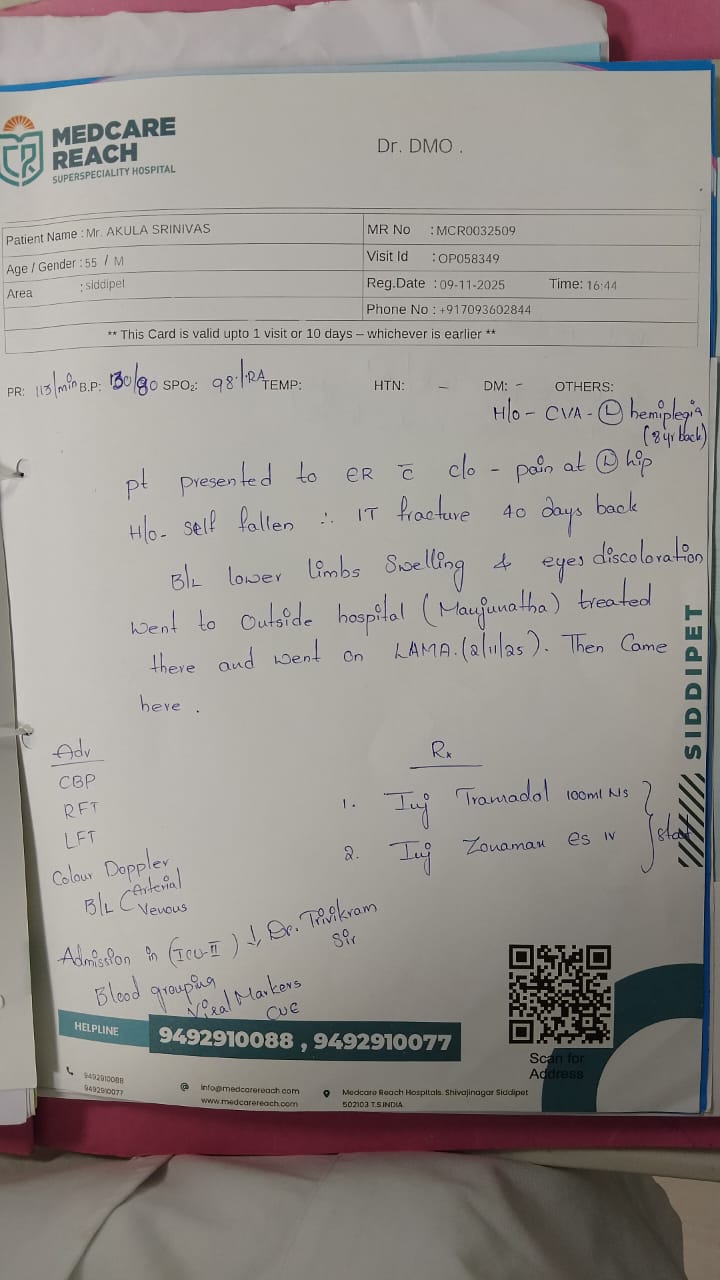 MEDCARE
REACH
SUPERSPECIALITY HOSPITAL
Dr. DMO .
Patient Name : Mr. AKULA SRINIVAS
MR No : MCR0032509
Age / Gender : 55 / M
Visit Id : OP058349
Area : siddipet
Reg.Date : 09-11-2025 Time: 16:44
Phone No : +917093602844
** This Card is valid upto 1 visit or 10 days – whichever is earlier **
PR: 113/min B.P: 130/80 SPO₂: 98% RA TEMP: HTN: – DM: – OTHERS:
H/o - CVA - Ⓛ hemiplegia
(8 yr back)
pt presented to ER c̄ c/o - pain at Ⓛ hip
H/o- self fallen ∴ IT fracture 40 days back
B/L lower limbs swelling & eyes discoloration
went to outside hospital (Manjunatha) treated
there and went on LAMA. (2/11/25). Then Came
here .
Adv
CBP
RFT
LFT
Colour Doppler
B/L ( Arterial
Venous
Admission in (ICU-II) ↓ Dr. Trivikram
Sir
Blood grouping
Viral Markers
CUE
Rx
1. Inj Tramadol 100ml NS
2. Inj IV
stat
SIDDIPET
HELPLINE 9492910088 , 9492910077
Scan for
Address
9492910088
9492910077
info@medcarereach.com
www.medcarereach.com
Medcare Reach Hospitals. Shivajinagar Siddipet
502103 T.S.INDIA